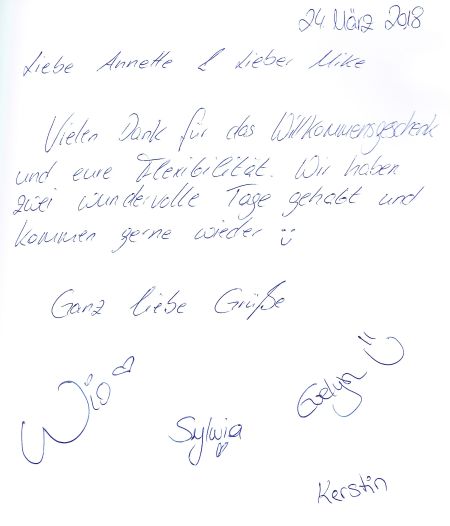 24. März 2018
Liebe Annette & Lieber Mike
Vielen Dank für das Willkommensgeschenk
und eure Flexibilität. Wir haben
zwei wundervolle Tage gehabt und
kommen gerne wieder :)
Ganz liebe Grüße
Evelyn :)
Sylwia
Kerstin